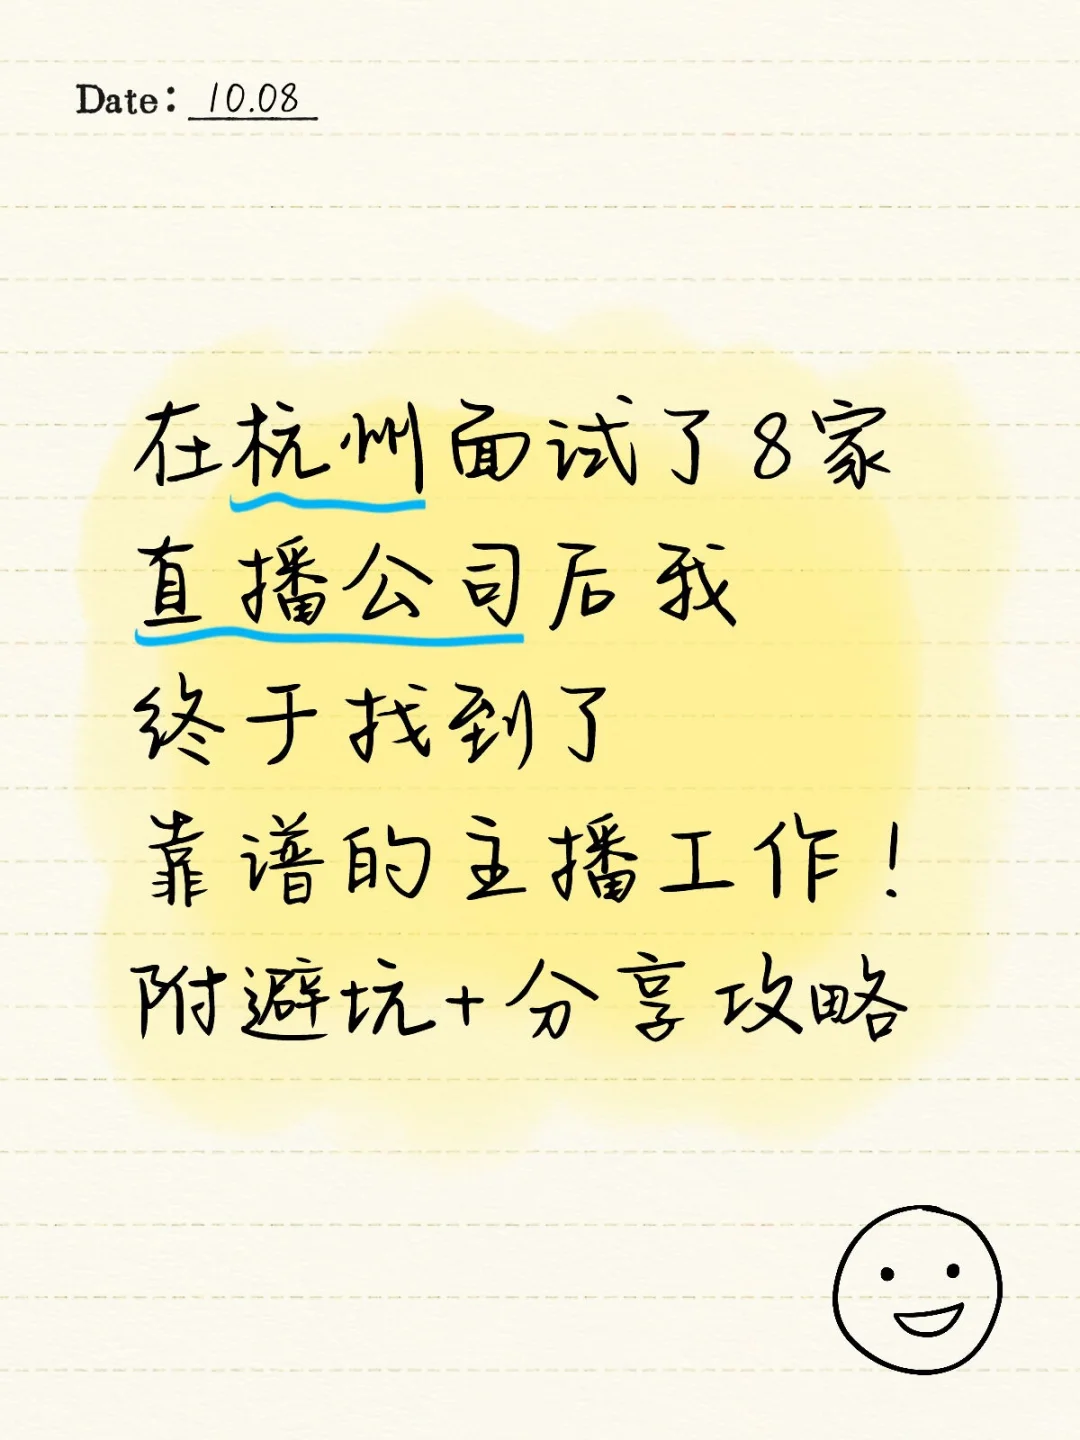 Date: 10.08
在杭州面试了8家
直播公司后我
终于找到了
靠谱的主播工作！
附避坑+分享攻略